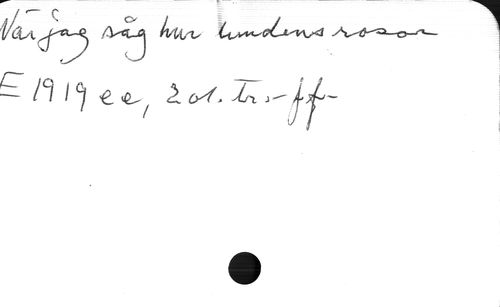 När jag såg hur lundens rosor
E 1919 ee, 2 ol. tr. - ff -